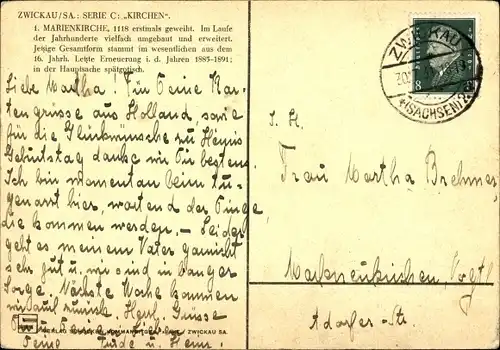 ZWICKAU/SA.: SERIE C: „KIRCHEN".
1. MARIENKIRCHE, 1118 erstmals geweiht. Im Laufe
der Jahrhunderte vielfach umgebaut und erweitert.
Jetzige Gesamtform stammt im wesentlichen aus dem
16. Jahrh. Letzte Erneuerung i. d. Jahren 1885-1891;
in der Hauptsache spätgotisch.
Liebe Martha! Für Deine Kar-
tengrüsse aus Holland, sowie
für die Glückwünsche zu Heinis
Geburtstag danke wir Dir bestens
Ich bin momentan beim
hier, wartend der Dinge,
die kommen werden, – Leider
geht es meinem Vater garnicht
sehr gut u. wir sind in banger
Sorge. Nächste Woche kommen
wir zurück. Herzl. Grüsse
Deine Trude u. Heini.
ZWICKAU SA.
ZWICKAU
(SACHSEN)
8
Frau Martha Brehmer,
Markneukirchen, Vogtl.
Adorfer-Str.